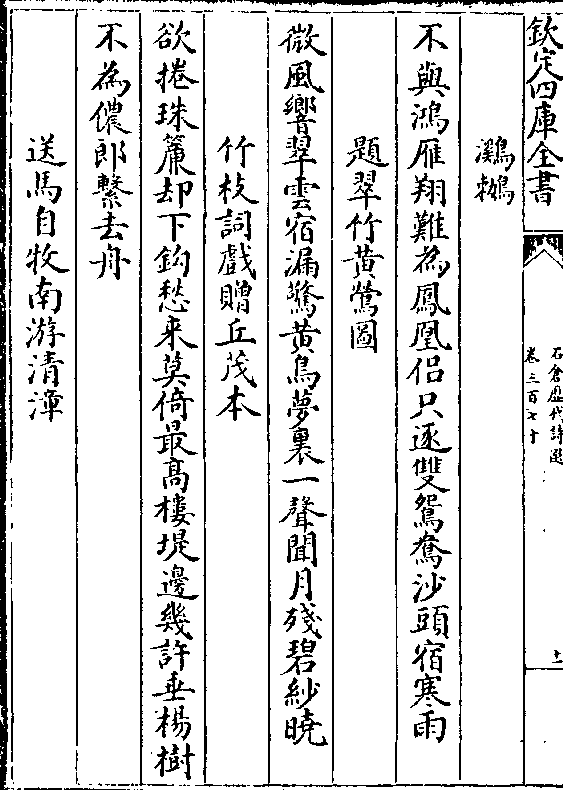 欽定四庫全書
石倉歷代詩選
卷三百七十
十一
鸂鶒
不與鴻雁翔難為鳳凰侶只逐雙鴛鴦沙頭宿寒雨
題翠竹黃鶯圖
微風響翠雲宿漏驚黃鳥夢裏一聲聞月殘碧紗曉
竹枝詞戲贈丘茂本
欲捲珠簾却下鈎愁来莫倚最髙樓堤邊幾許垂楊樹
不為儂郎繫去舟
送馬自牧南游清漳